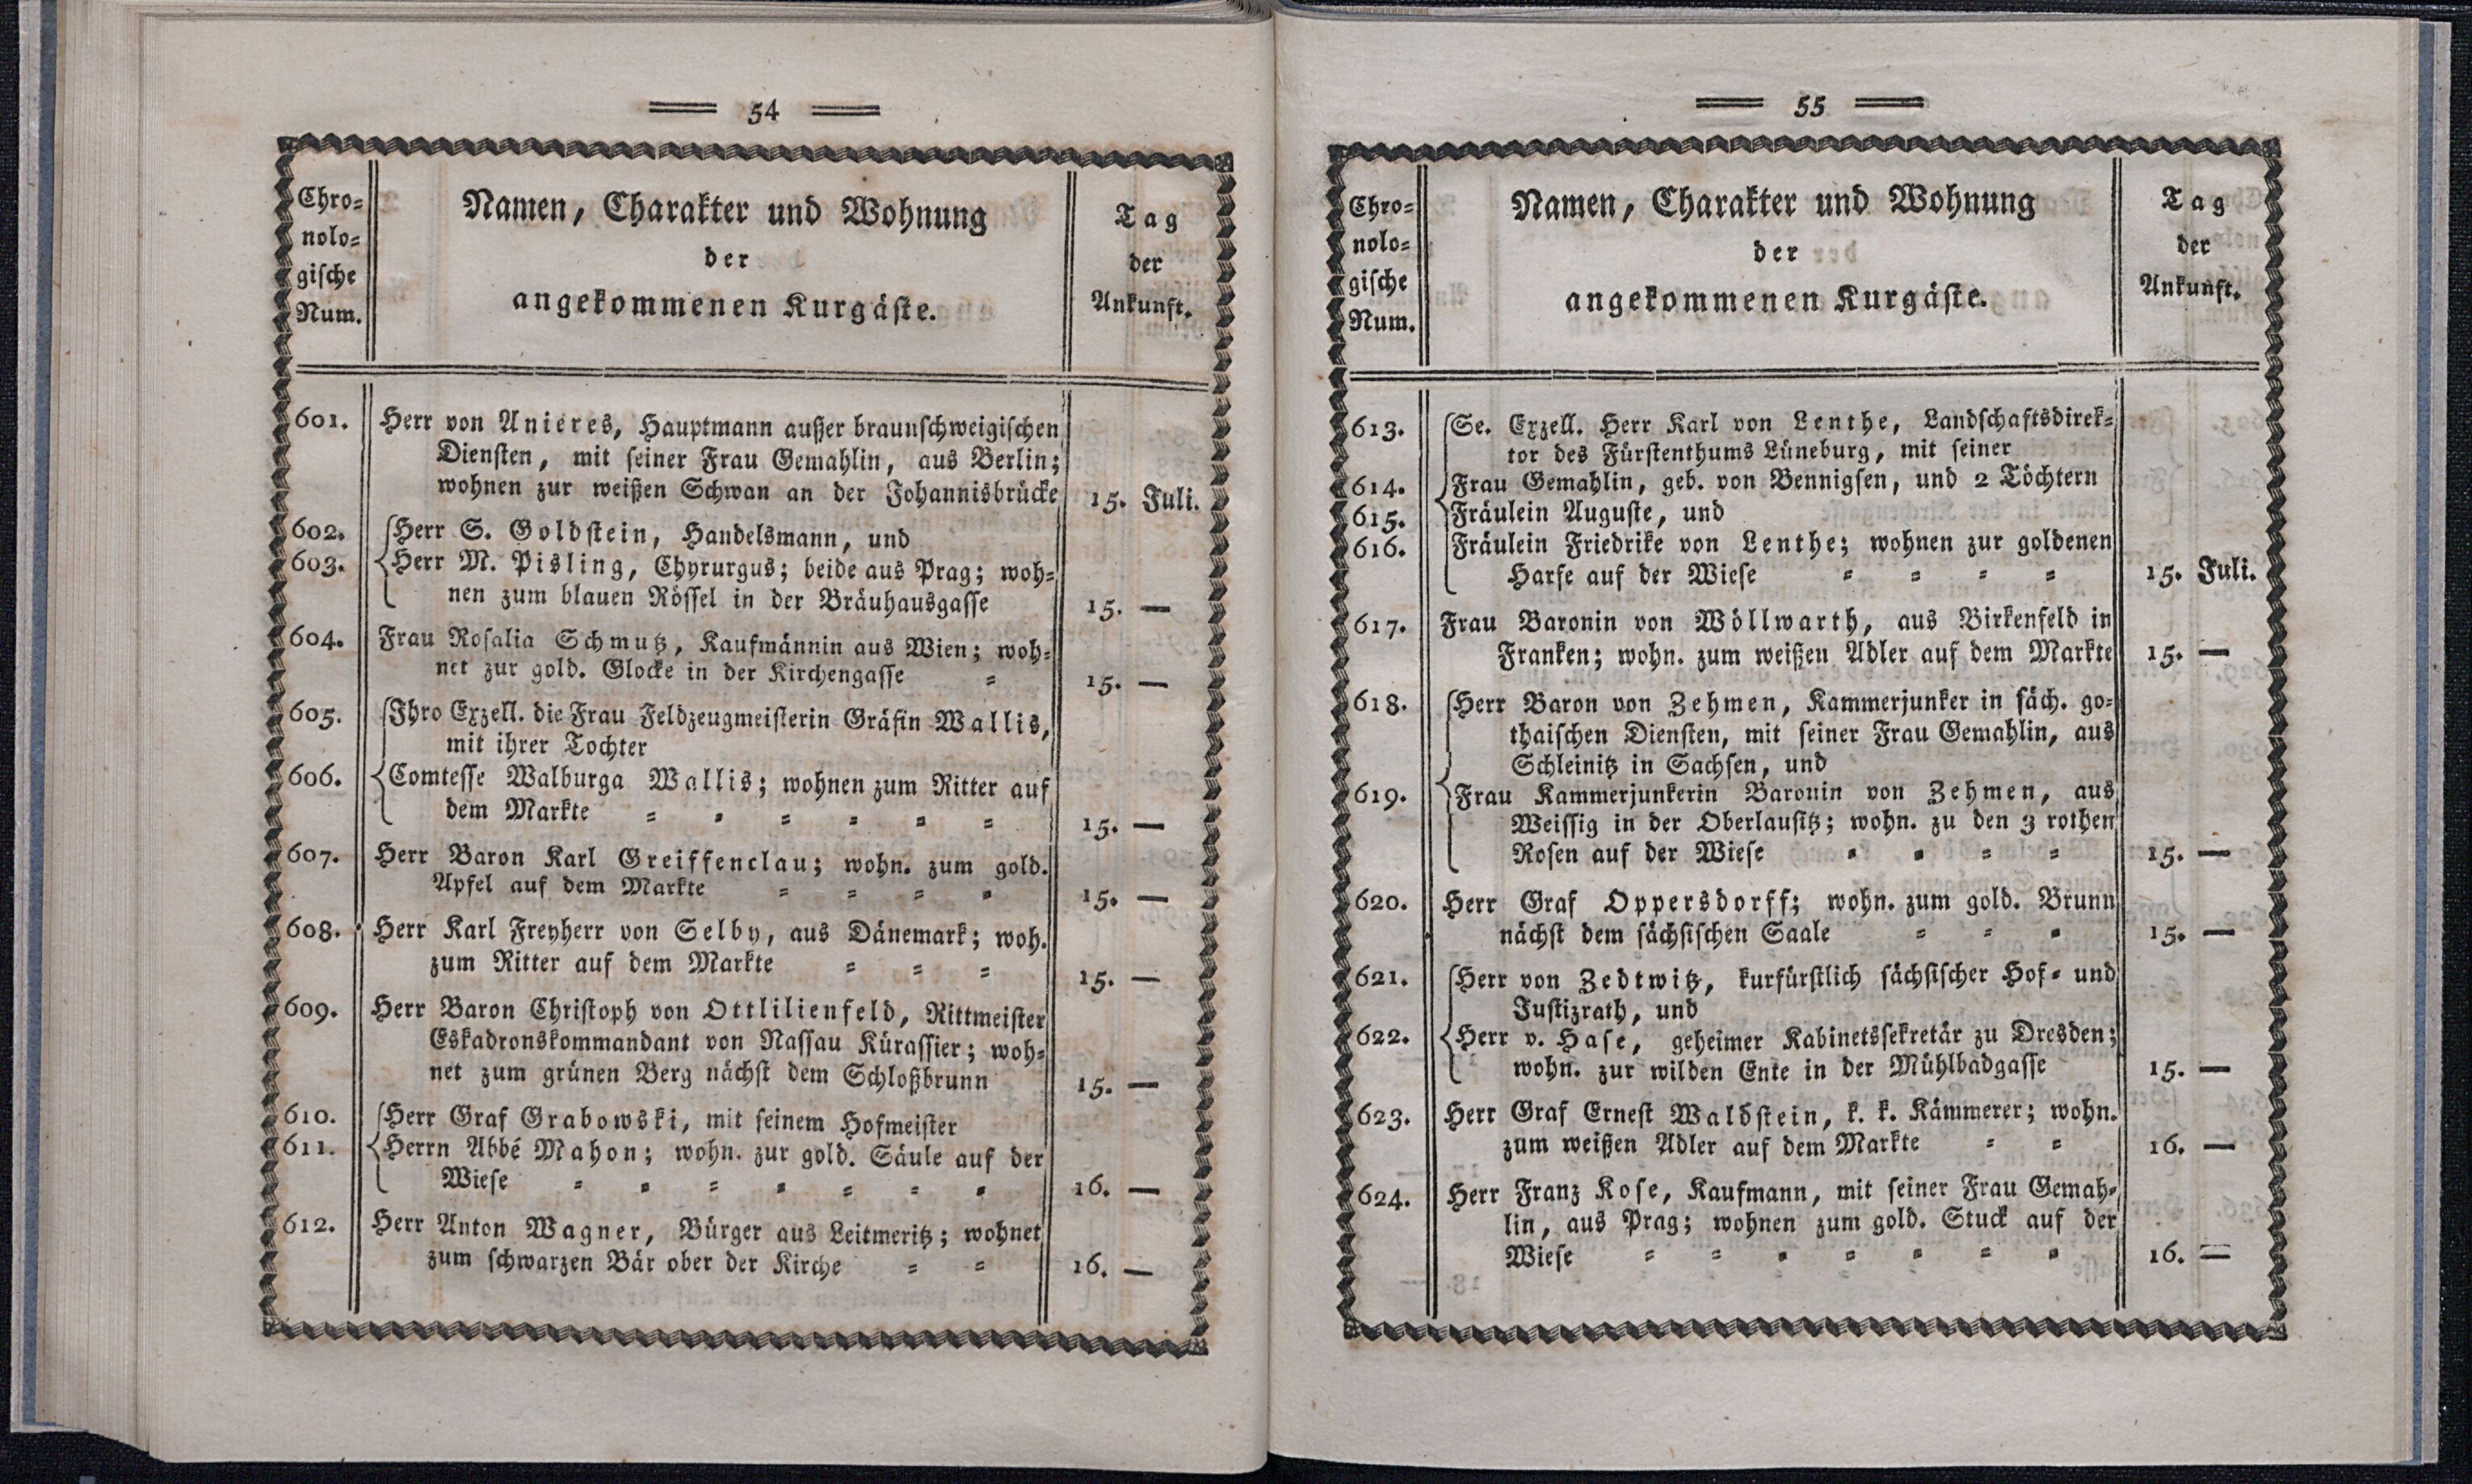 54
Chro-
nolo-
gische
Num.
Namen, Charakter und Wohnung
der
angekommenen Kurgäste.
Tag
der
Ankunft.
601. Herr von Anieres, Hauptmann außer braunschweigischen
Diensten, mit seiner Frau Gemahlin, aus Berlin;
wohnen zur weißen Schwan an der Johannisbrücke 15. Juli.
602. Herr S. Goldstein, Handelsmann, und
603. Herr M. Pisling, Chyrurgus; beide aus Prag; woh-
nen zum blauen Rössel in der Bräuhausgasse 15. —
604. Frau Rosalia Schmutz, Kaufmännin aus Wien; woh-
net zur gold. Glocke in der Kirchengasse = 15. —
605. Ihro Exzell. die Frau Feldzeugmeisterin Gräfin Wallis,
mit ihrer Tochter
606. Comtesse Walburga Wallis; wohnen zum Ritter auf
dem Markte = = = = = = 15. —
607. Herr Baron Karl Greiffenclau; wohn. zum gold.
Apfel auf dem Markte = = = = 15. —
608. Herr Karl Freyherr von Selby, aus Dänemark; woh.
zum Ritter auf dem Markte = = = 15. —
609. Herr Baron Christoph von Ottlilienfeld, Rittmeister
Eskadronskommandant von Nassau Kürassier; woh-
net zum grünen Berg nächst dem Schloßbrunn 15. —
610. Herr Graf Grabowski, mit seinem Hofmeister
611. Herrn Abbé Mahon; wohn. zur gold. Säule auf der
Wiese = = = = = = = 16. —
612. Herr Anton Wagner, Bürger aus Leitmeritz; wohnet
zum schwarzen Bär ober der Kirche = = 16. —
55
Chro-
nolo-
gische
Num.
Namen, Charakter und Wohnung
der
angekommenen Kurgäste.
Tag
der
Ankunft.
613. Se. Exzell. Herr Karl von Lenthe, Landschaftsdirek-
tor des Fürstenthums Lüneburg, mit seiner
614. Frau Gemahlin, geb. von Bennigsen, und 2 Töchtern
615. Fräulein Auguste, und
616. Fräulein Friedrike von Lenthe; wohnen zur goldenen
Harfe auf der Wiese = = = = 15. Juli.
617. Frau Baronin von Wöllwarth, aus Birkenfeld in
Franken; wohn. zum weißen Adler auf dem Markte 15. —
618. Herr Baron von Zehmen, Kammerjunker in säch. go-
thaischen Diensten, mit seiner Frau Gemahlin, aus
Schleinitz in Sachsen, und
619. Frau Kammerjunkerin Baronin von Zehmen, aus
Weissig in der Oberlausitz; wohn. zu den 3 rothen
Rosen auf der Wiese = = = = 15. —
620. Herr Graf Oppersdorff; wohn. zum gold. Brunn
nächst dem sächsischen Saale = = = 15. —
621. Herr von Zedtwitz, kurfürstlich sächsischer Hof- und
Justizrath, und
622. Herr v. Hase, geheimer Kabinetssekretär zu Dresden;
wohn. zur wilden Ente in der Mühlbadgasse 15. —
623. Herr Graf Ernest Waldstein, k. k. Kämmerer; wohn.
zum weißen Adler auf dem Markte = = 16. —
624. Herr Franz Kose, Kaufmann, mit seiner Frau Gemah-
lin, aus Prag; wohnen zum gold. Stuck auf der
Wiese = = = = = = = 16. —